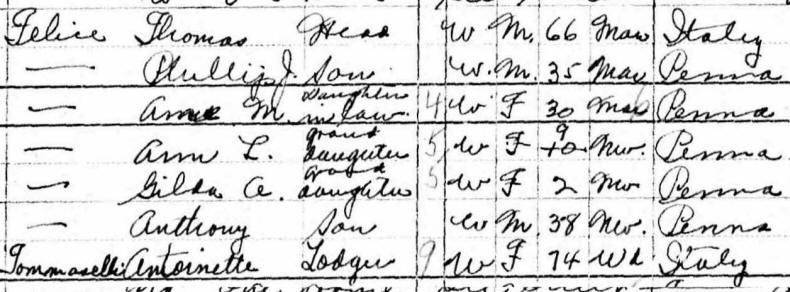 Felice Thomas Head W M. 66 Mar Italy
— Phillip J. Son W. M. 35 Mar Penna
— Anne M. Daughter in law 4 W F 30 Mar Penna
— Ann L. grand daughter 5 W F 9 Nev. Penna
— Gilda A. grand daughter 5 W F 2 Nev Penna
— Anthony Son W M. 38 Nev. Penna
Tommaselli Antoinette Lodger 9 W F 74 Wd Italy